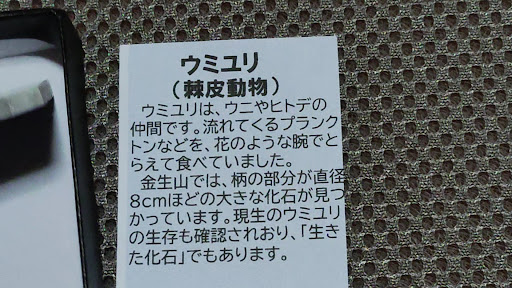 ウミユリ
(棘皮動物)
ウミユリは、ウニやヒトデの
仲間です。流れてくるプランク
トンなどを、花のような腕でと
らえて食べていました。
金生山では、柄の部分が直径
8cmほどの大きな化石が見つ
かっています。現生のウミユリ
の生存も確認されおり、「生き
た化石」でもあります。